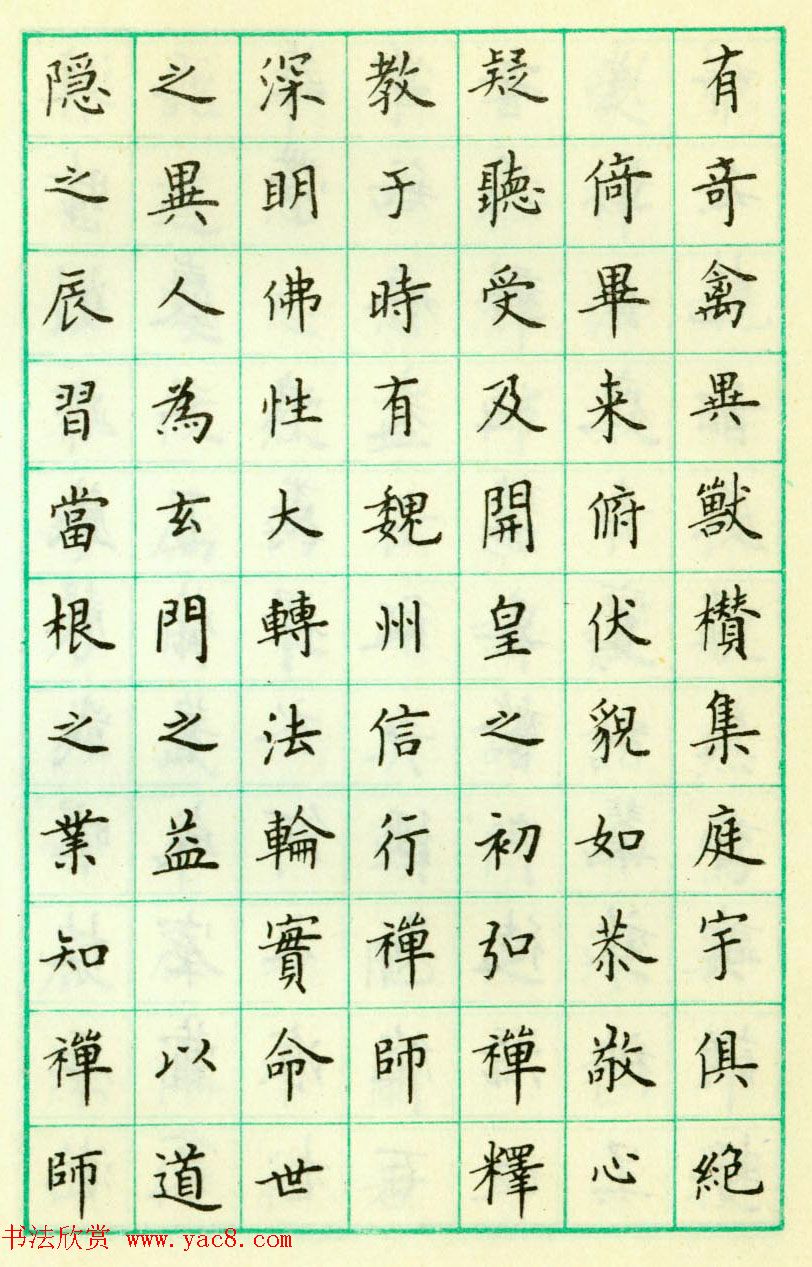 有奇禽異獸欑集庭宇俱絕
倚畢来俯伏貌如恭敬心
疑聽受及開皇之初弘禪釋
教于時有魏州信行禪師
深明佛性大轉法輪實命世
之異人為玄門之益以道
隠之辰習當根之業知禪師
书法欣赏 www.yac8.com